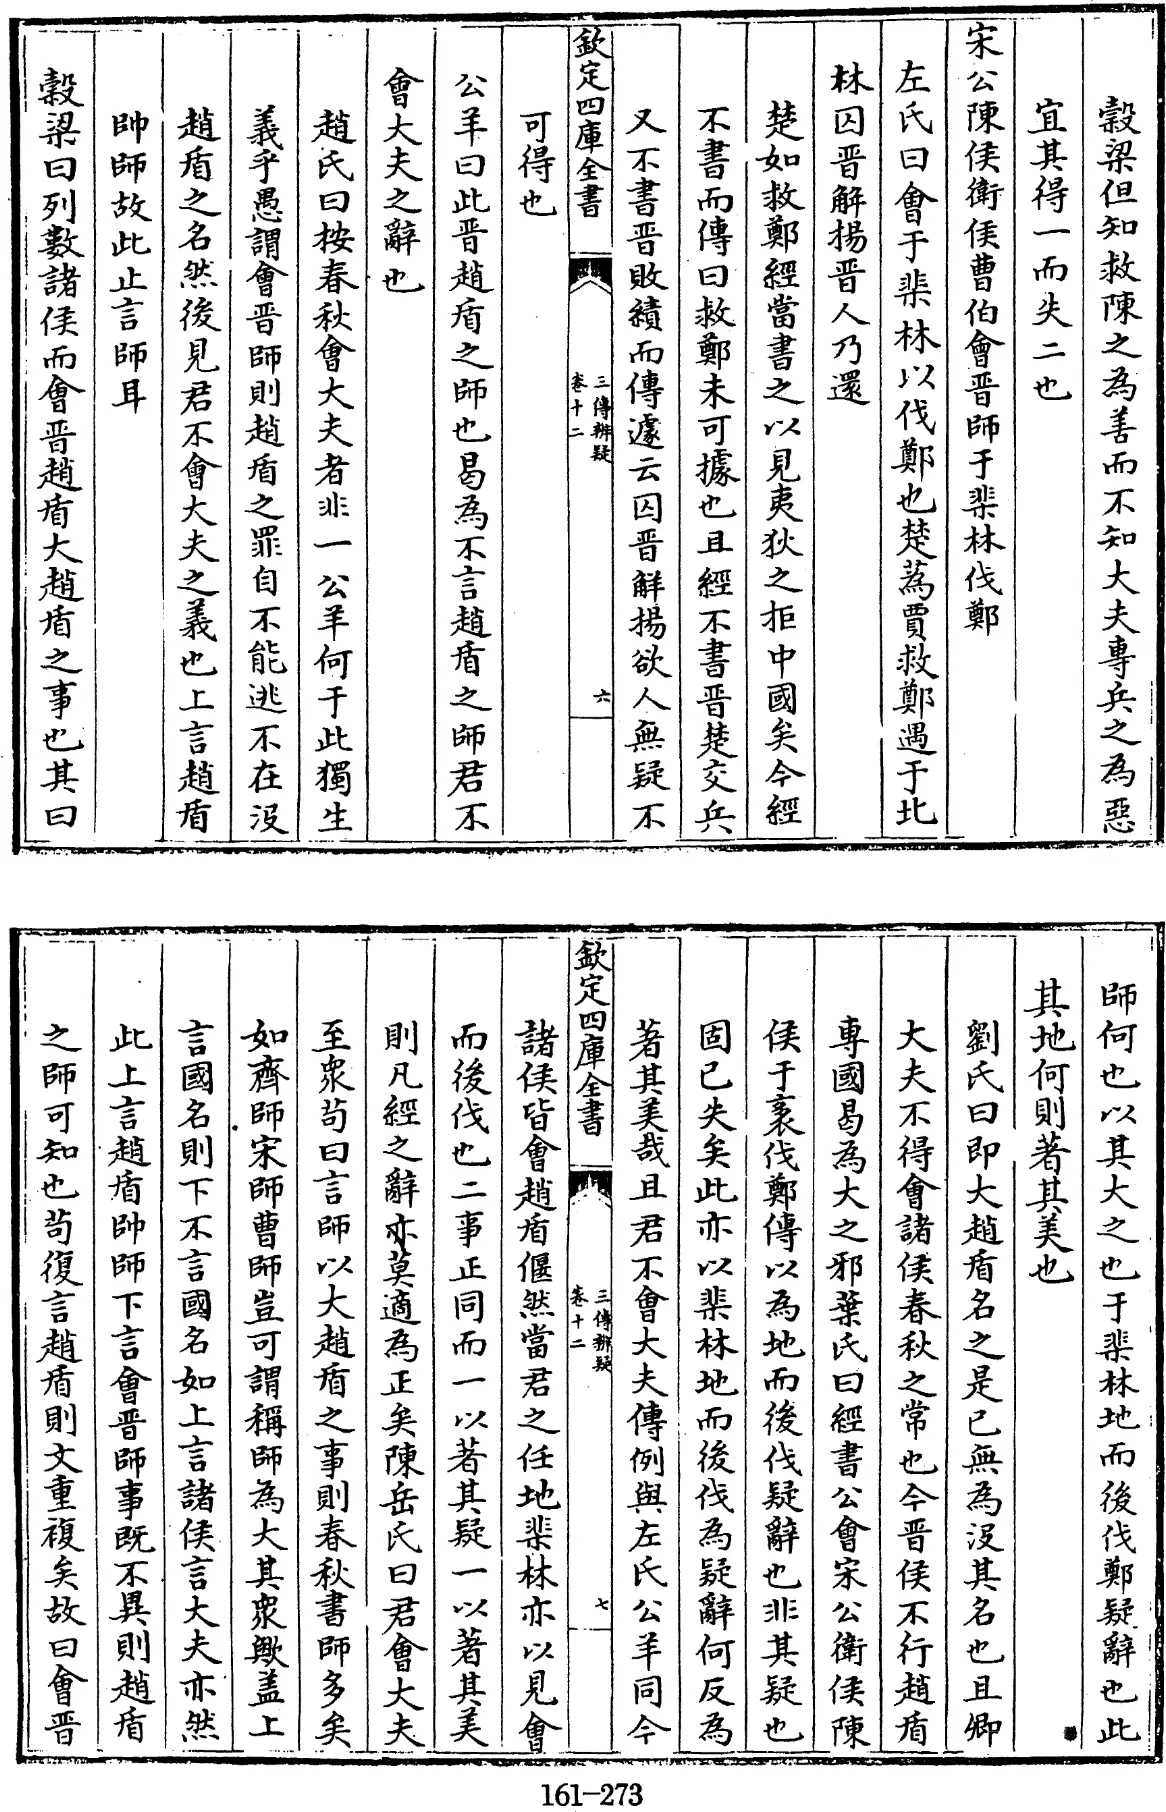 穀梁但知救陳之為善而不知大夫專兵之為惡
宜其得一而失二也
宋公陳侯衛侯曹伯會晉師于棐林伐鄭
左氏曰會于棐林以伐鄭也楚蒍賈救鄭遇于北
林囚晉解揚晉人乃還
楚如救鄭經當書之以見夷狄之拒中國矣今經
不書而傳曰救鄭未可據也且經不書晉楚交兵
又不書晉敗績而傳遽云囚晉解揚欲人無疑不
欽定四庫全書
三傳辨疑
卷十二
六
可得也
公羊曰此晉趙盾之師也曷為不言趙盾之師君不
會大夫之辭也
趙氏曰按春秋會大夫者非一公羊何于此獨生
義乎愚謂會晉師則趙盾之罪自不能逃不在沒
趙盾之名然後見君不會大夫之義也上言趙盾
帥師故此止言師耳
穀梁曰列數諸侯而會晉趙盾大趙盾之事也其曰
師何也以其大之也于棐林地而後伐鄭疑辭也此
其地何則著其美也
劉氏曰即大趙盾名之是已無為沒其名也且卿
大夫不得會諸侯春秋之常也今晉侯不行趙盾
專國曷為大之邪葉氏曰經書公會宋公衛侯陳
侯于袲伐鄭傳以為地而後伐疑辭也非其疑也
固已失矣此亦以棐林地而後伐為疑辭何反為
著其美哉且君不會大夫傳例與左氏公羊同今
欽定四庫全書
三傳辨疑
卷十二
七
諸侯皆會趙盾偃然當君之任地棐林亦以見會
而後伐也二事正同而一以著其疑一以著其美
則凡經之辭亦莫適為正矣陳岳氏曰君會大夫
至衆茍曰言師以大趙盾之事則春秋書師多矣
如齊師宋師曹師豈可謂稱師為大其衆歟盖上
言國名則下不言國名如上言諸侯言大夫亦然
此上言趙盾帥師下言會晉師事既不異則趙盾
之師可知也茍復言趙盾則文重複矣故曰會晉
161-273